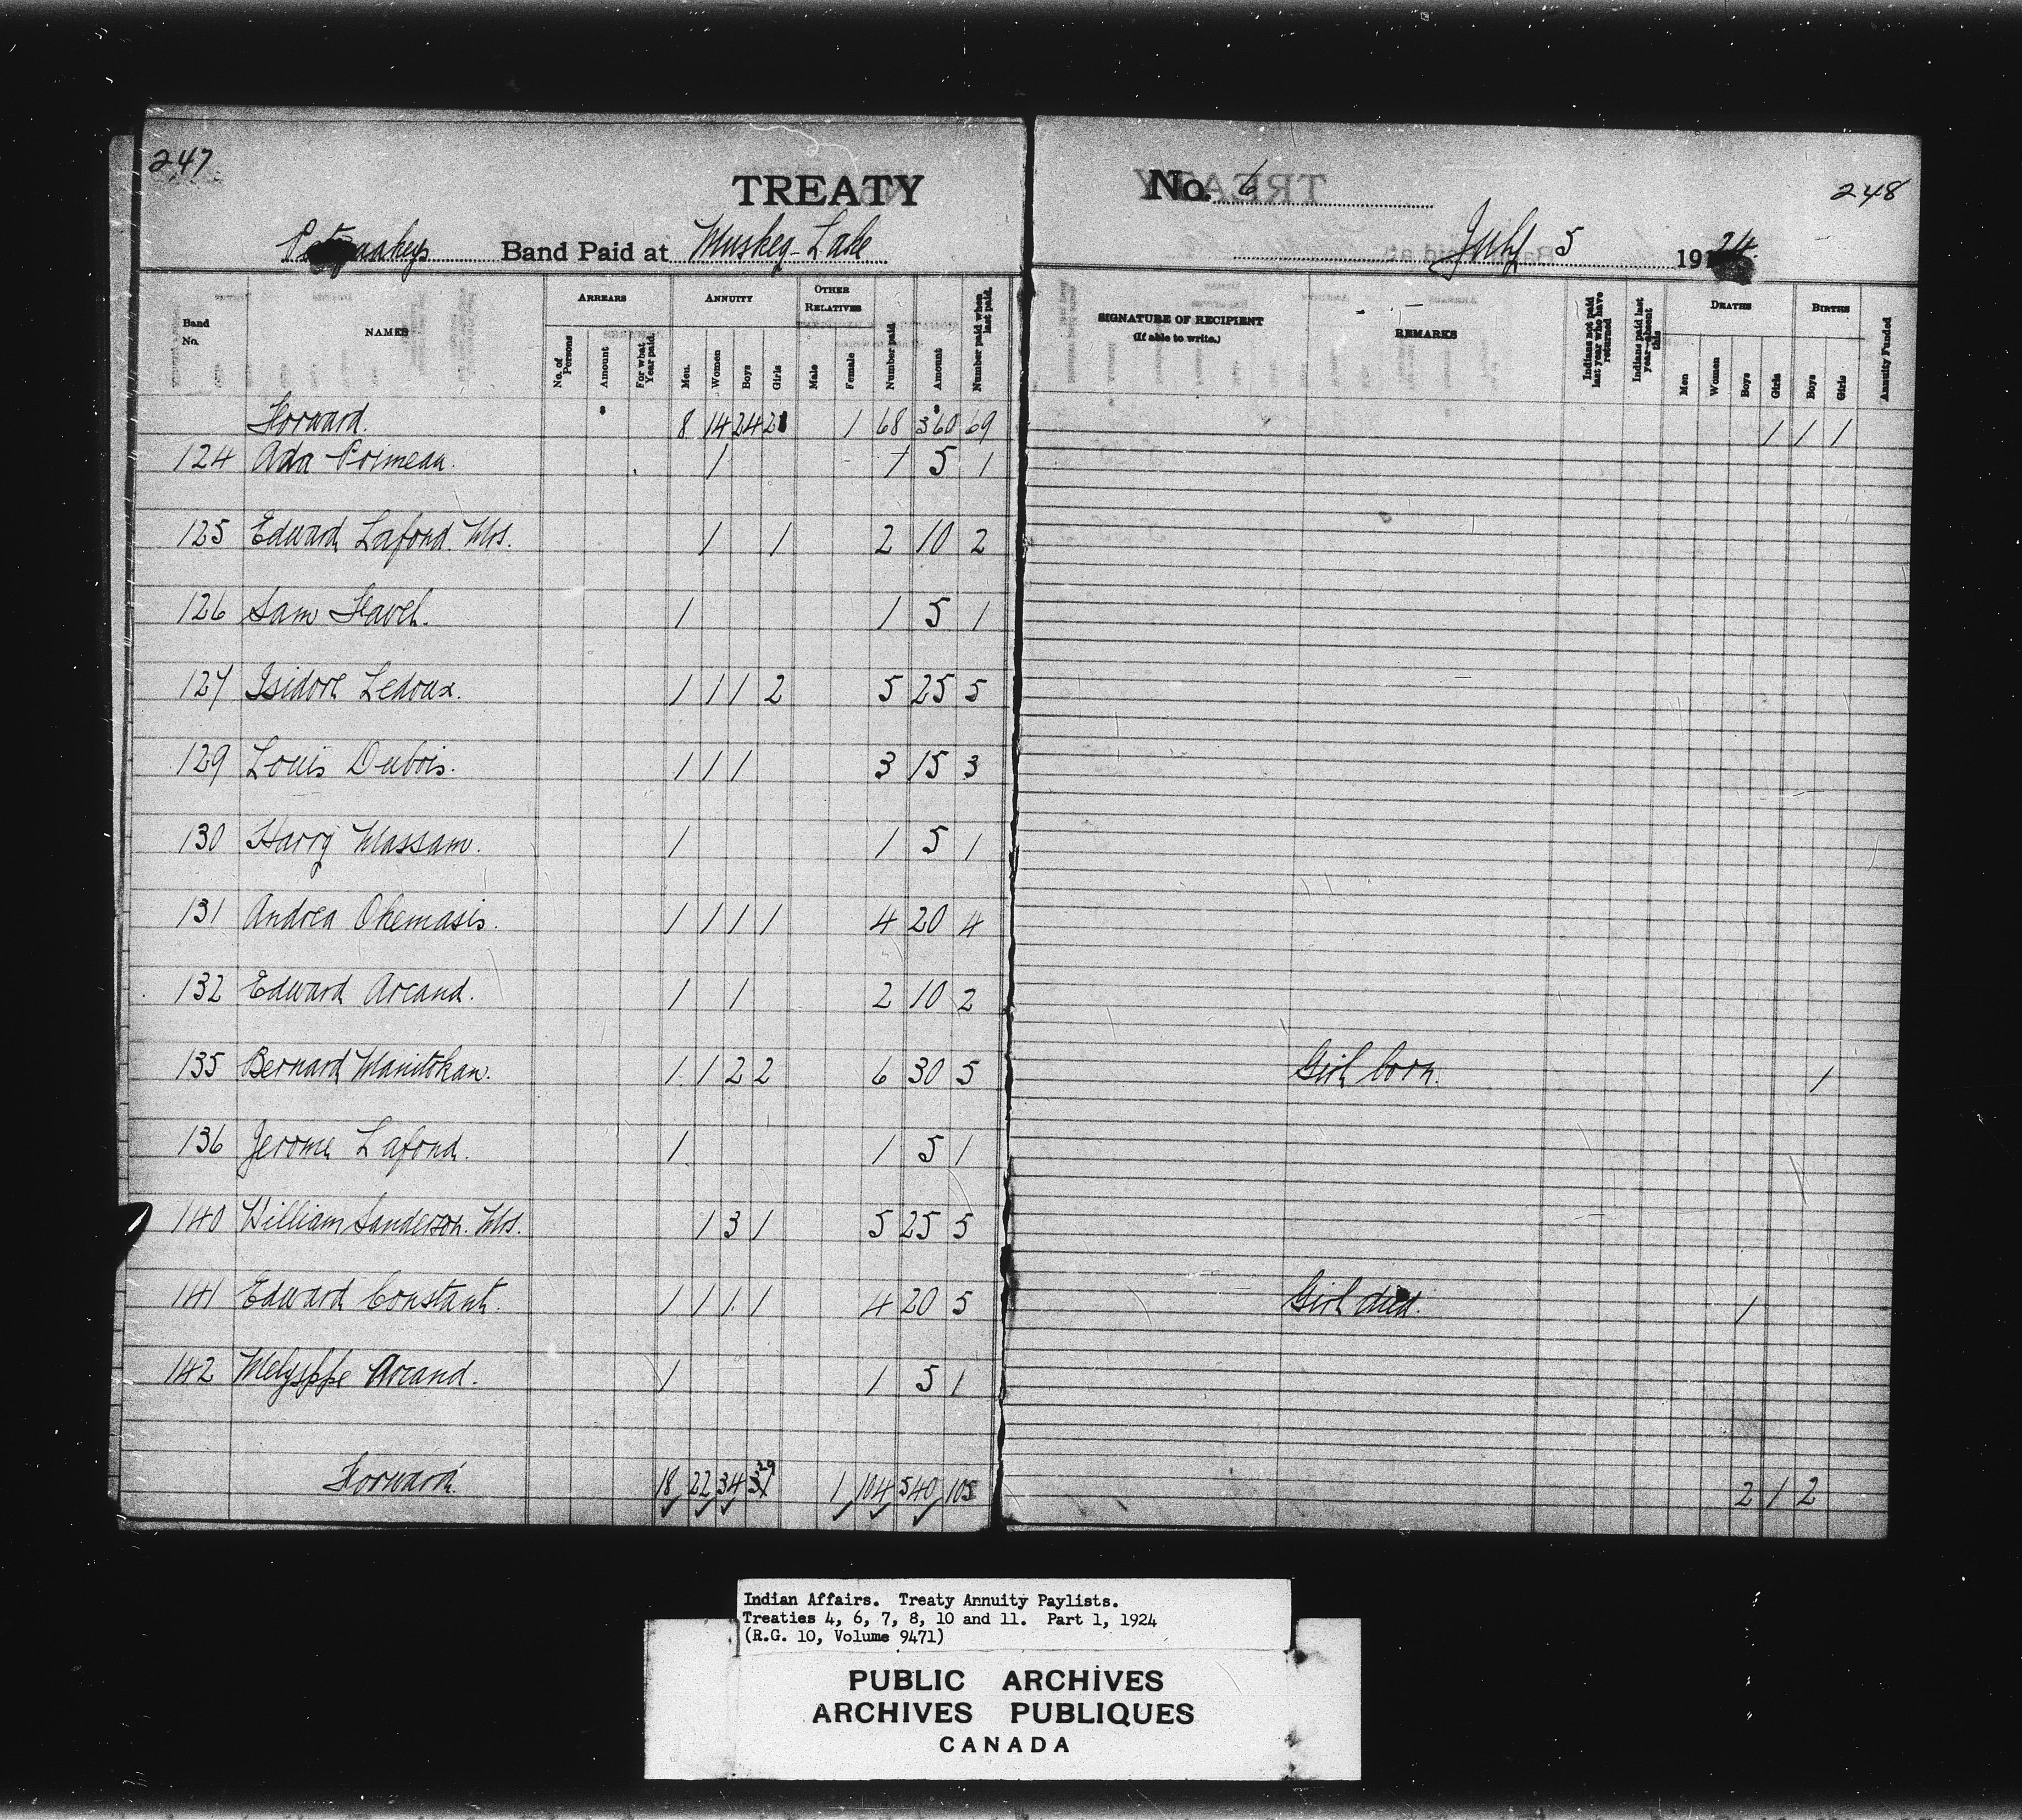 247
TREATY No. 6
248
Band Paid at Muskeg-Lake July 5 1924.
Band No. NAMES ARREARS ANNUITY OTHER RELATIVES Number paid. Amount Number paid when last paid. SIGNATURE OF RECIPIENT (If able to write.) REMARKS Indians not paid last year who have returned Indians paid last year—absent this DEATHS BIRTHS Annuity Funded
No. of Persons Amount For what Year paid. Men. Women Boys Girls Male Female Men Women Boys Girls Boys Girls
Forward. 8 14 24 21 1 68 360 69 1 1 1
124 Ada Primeau. 1 1 5 1
125 Edward Lafond. Mrs. 1 1 2 10 2
126 Sam Favel. 1 1 5 1
127 Isidore Ledoux. 1 1 1 2 5 25 5
129 Louis Dubois. 1 1 1 3 15 3
130 Harry Massam. 1 1 5 1
131 Andrea Okemasis. 1 1 1 1 4 20 4
132 Edward Arcand. 1 1 2 10 2
135 Bernard Manitokan. 1 1 2 2 6 30 5 Girl born. 1
136 Jerome Lafond. 1 1 5 1
140 William Sanderson. Mrs. 1 3 1 5 25 5
141 Edward Constant. 1 1 1 1 4 20 5 Girl died. 1
142 Arcand. 1 1 5 1
Forward. 18 22 34 29 1 104 540 105 2 1 2
Indian Affairs. Treaty Annuity Paylists.
Treaties 4, 6, 7, 8, 10 and 11. Part 1, 1924
(R.G. 10, Volume 9471)
PUBLIC ARCHIVES
ARCHIVES PUBLIQUES
CANADA